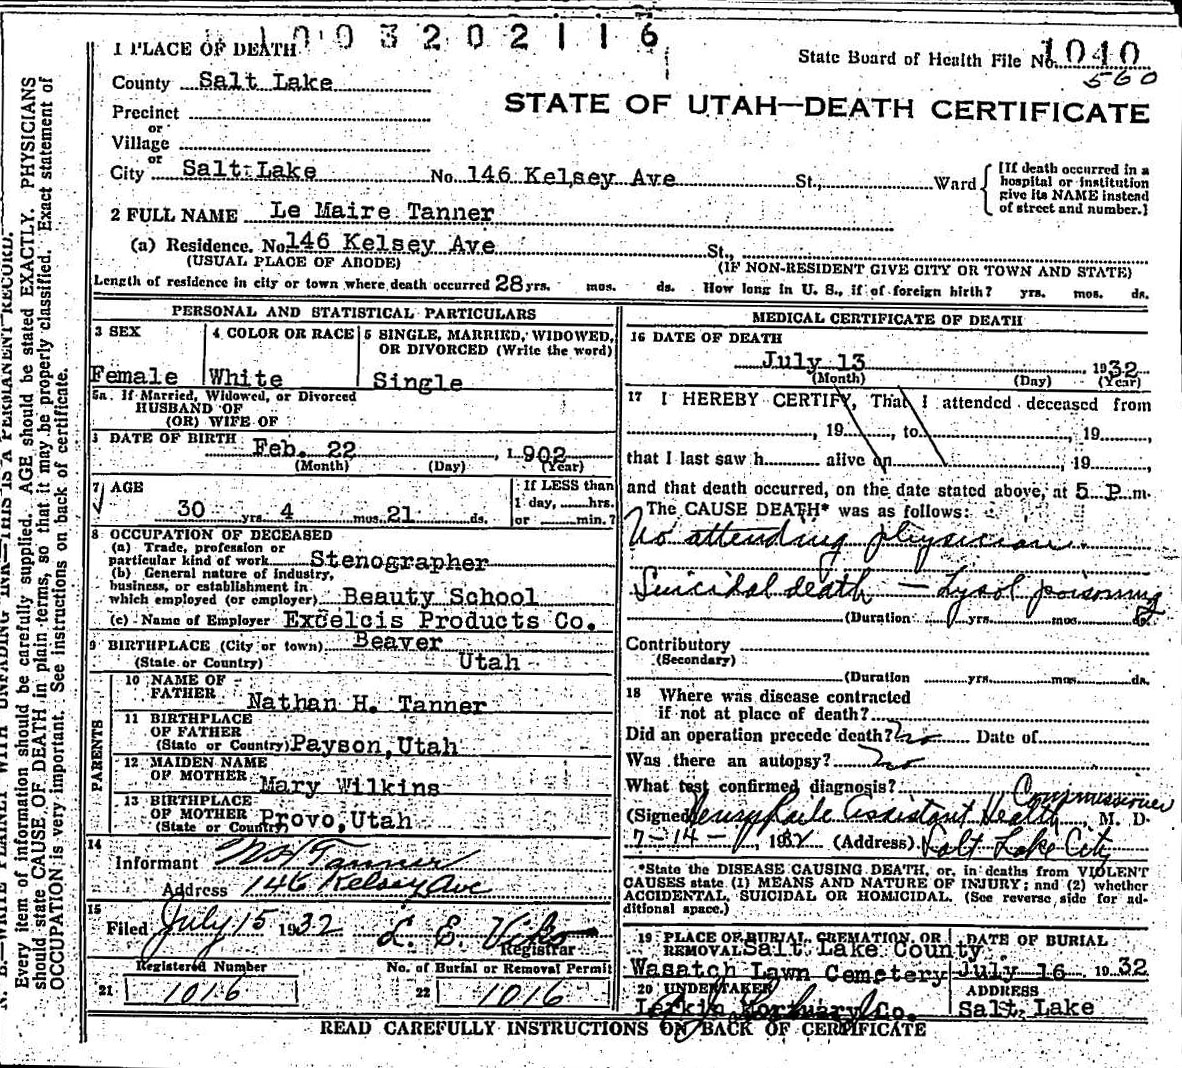 1003202116
1 PLACE OF DEATH
State Board of Health File No. 1040
560
County Salt Lake
STATE OF UTAH—DEATH CERTIFICATE
Precinct
or
Village
or
City Salt Lake No. 146 Kelsey Ave St., Ward
[If death occurred in a
hospital or institution
give its NAME instead
of street and number.]
2 FULL NAME Le Maire Tanner
(a) Residence. No 146 Kelsey Ave St.,
(USUAL PLACE OF ABODE) (IF NON-RESIDENT GIVE CITY OR TOWN AND STATE)
Length of residence in city or town where death occurred 28 yrs. mos. ds. How long in U. S., if of foreign birth? yrs. mos. ds.
PERSONAL AND STATISTICAL PARTICULARS
3 SEX
Female
4 COLOR OR RACE
White
5 SINGLE, MARRIED, WIDOWED,
OR DIVORCED (Write the word)
Single
5a. If Married, Widowed, or Divorced
HUSBAND OF
(OR) WIFE OF
DATE OF BIRTH Feb. 22, 1902
(Month) (Day) (Year)
7 AGE
30 yrs. 4 mos. 21 ds.
If LESS than
1 day, hrs.
or min.?
8 OCCUPATION OF DECEASED
(a) Trade, profession or
particular kind of work Stenographer
(b) General nature of industry,
business, or establishment in
which employed (or employer) Beauty School
(c) Name of Employer Excelcis Products Co.
9 BIRTHPLACE (City or town) Beaver
(State or Country) Utah
PARENTS
10 NAME OF
FATHER Nathan H. Tanner
11 BIRTHPLACE
OF FATHER
(State or Country) Payson, Utah
12 MAIDEN NAME
OF MOTHER Mary Wilkins
13 BIRTHPLACE
OF MOTHER
(State or Country) Provo, Utah
14
Informant N H Tanner
Address 146 Kelsey Ave
15
Filed July 15 1932 L. E. Viko
Registrar
Registered Number
21 1016
No. of Burial or Removal Permit
22 1016
MEDICAL CERTIFICATE OF DEATH
16 DATE OF DEATH
July 13, 1932
(Month) (Day) (Year)
17 I HEREBY CERTIFY, That I attended deceased from
, 19 , to , 19 ,
that I last saw h alive on , 19 ,
and that death occurred, on the date stated above, at 5 P. m.
The CAUSE DEATH* was as follows:
No attending physician
Suicidal death — Lysol poisoning
(Duration yrs. mos. ds.
Contributory
(Secondary)
(Duration yrs. mos. ds.
18 Where was disease contracted
if not at place of death?
Did an operation precede death? No Date of
Was there an autopsy? No
What test confirmed diagnosis?
Commissioner
(Signed Assistant Health, M. D.
7-14-, 1932 (Address) Salt Lake City
*State the DISEASE CAUSING DEATH, or, in deaths from VIOLENT
CAUSES state (1) MEANS AND NATURE OF INJURY; and (2) whether
ACCIDENTAL, SUICIDAL OR HOMICIDAL. (See reverse side for ad-
ditional space.)
19 PLACE OF BURIAL, CREMATION, OR
REMOVAL Salt Lake County
Wasatch Lawn Cemetery
DATE OF BURIAL
July 16 1932
20 UNDERTAKER
Larkin Mortuary Co.
ADDRESS
Salt Lake
READ CAREFULLY INSTRUCTIONS ON BACK OF CERTIFICATE
N. B.—WRITE PLAINLY WITH UNFADING INK—THIS IS A PERMANENT RECORD.
Every item of information should be carefully supplied. AGE should be stated EXACTLY. PHYSICIANS
should state CAUSE OF DEATH in plain terms, so that it may be properly classified. Exact statement of
OCCUPATION is very important. See instructions on back of certificate.